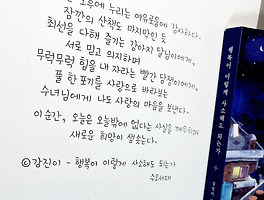 오후에 누리는 여유로움에 감사하다.
잠깐의 산책도 마지막인 듯
최선을 다해 즐기는 강아지 달님이에게,
서로 믿고 의지하며
무럭무럭 힘을 내 자라는 빨간 담쟁이에게,
풀 한 포기를 사랑으로 바라보는
수녀님에게 나도 사랑의 마음을 보낸다.
이 순간, 오늘은 오늘밖에 없다는 사실을 깨우치며
새로운 희망이 샘솟는다.
©강진이 - 행복이 이렇게 사소해도 되는가
수오서재
행복이 이렇게 사소해도 되는가